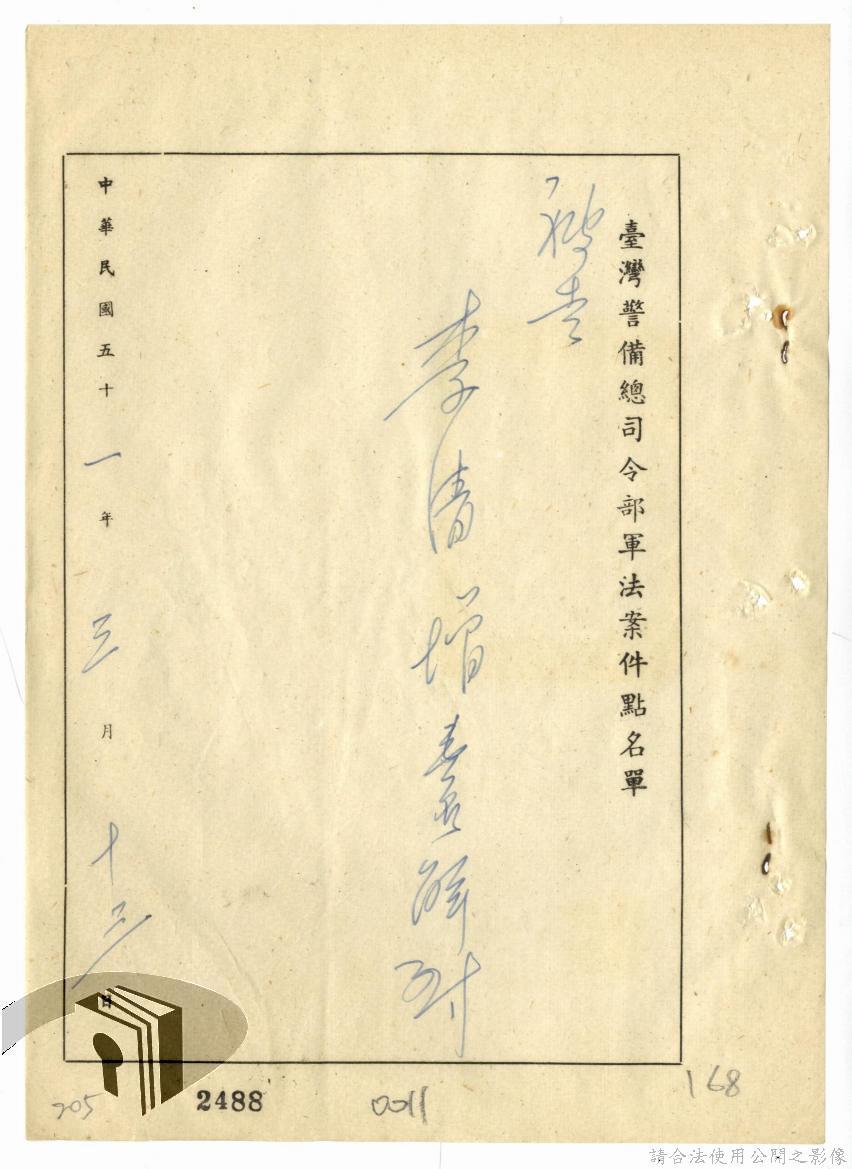 臺灣警備總司令部軍法案件點名單
被告
李清增
中華民國五十一年三月十三日
205
2488
0011
168
請合法使用公開之影像